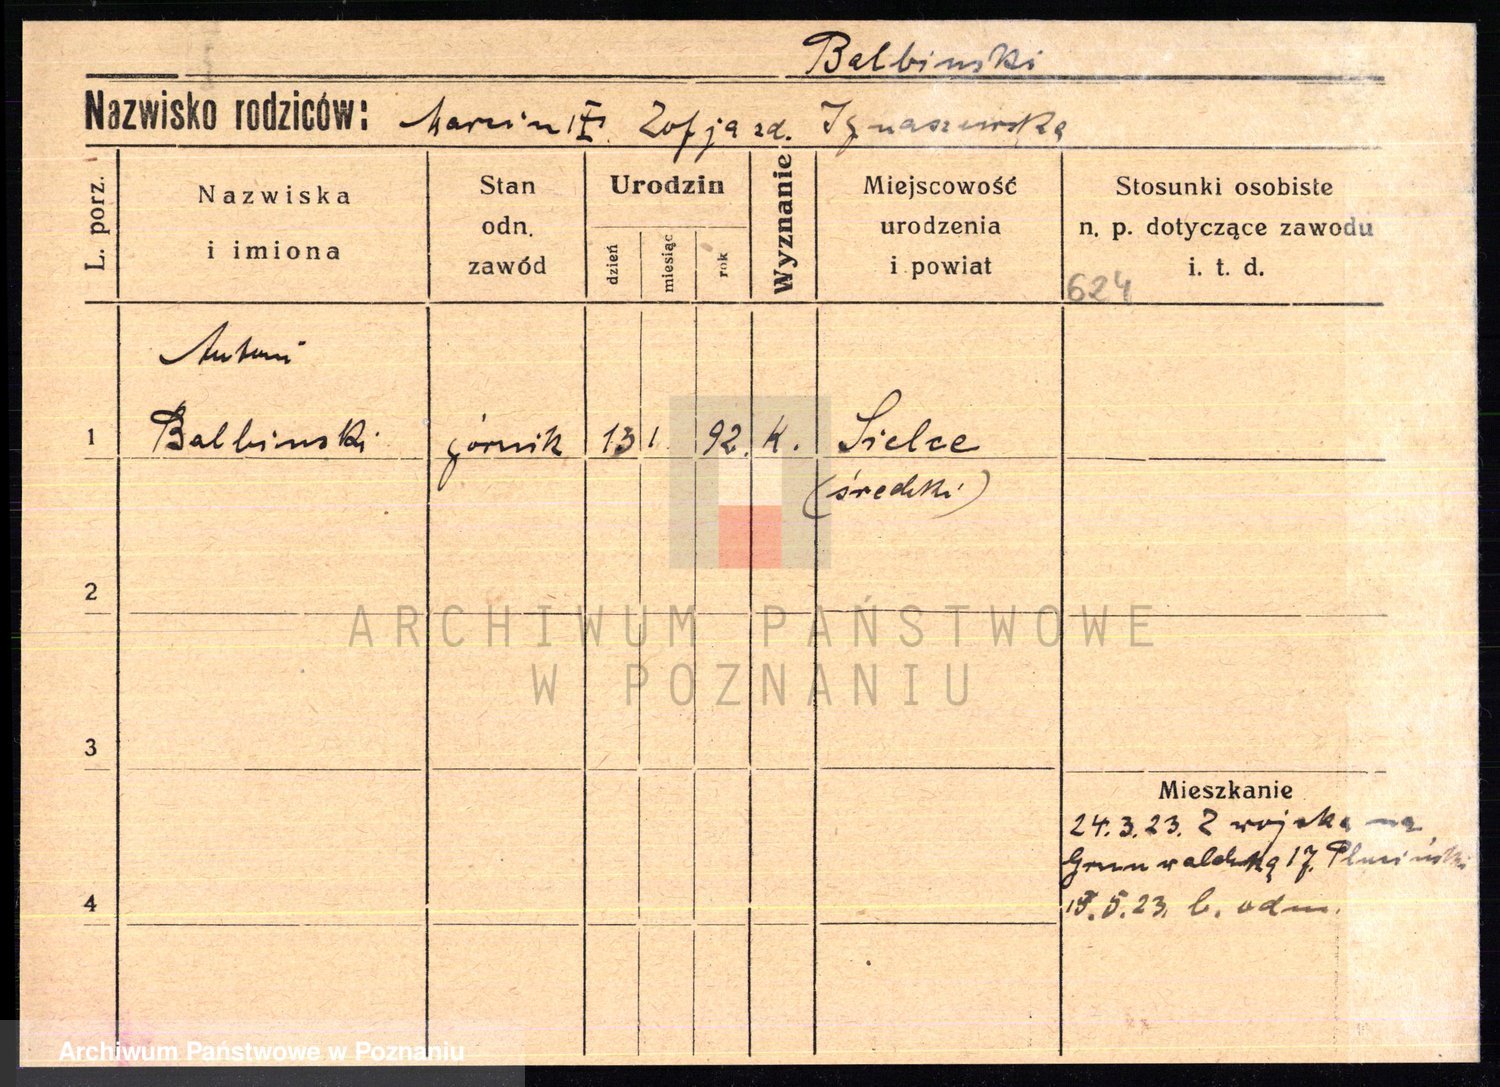 Balbinski
Nazwisko rodziców: Marcin i Zofja zd. Ignaszewska
L. porz.
Nazwiska
i imiona
Stan
odn.
zawód
Urodzin
dzień
miesiąc
rok
Wyznanie
Miejscowość
urodzenia
i powiat
Stosunki osobiste
n. p. dotyczące zawodu
i. t. d.
624
Antoni
1 Balbinski górnik 13 1. 92. k. Sielce
(średzki)
2
3
4
Mieszkanie
24.3.23. Z wojska na
Grunwaldzką 17. Pluciński
15.5.23. b. odm.
ARCHIWUM PAŃSTWOWE
W POZNANIU
Archiwum Państwowe w Poznaniu